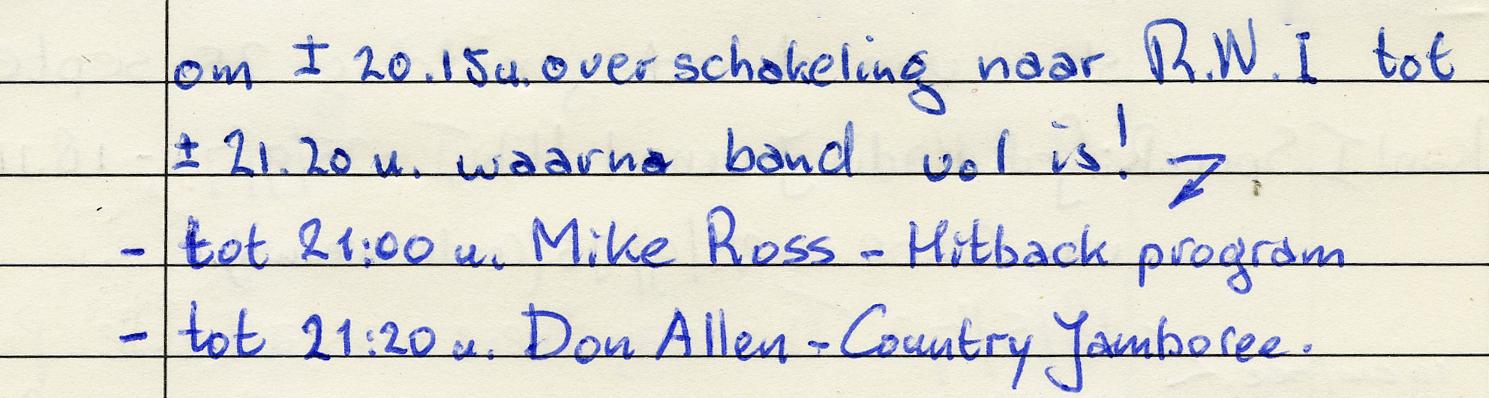 om ± 20.15u. overschakeling naar R.N.I tot
± 21.20 u. waarna band vol is!
- tot 21:00 u. Mike Ross - Hitback program
- tot 21:20 u. Don Allen - Country Jamboree.